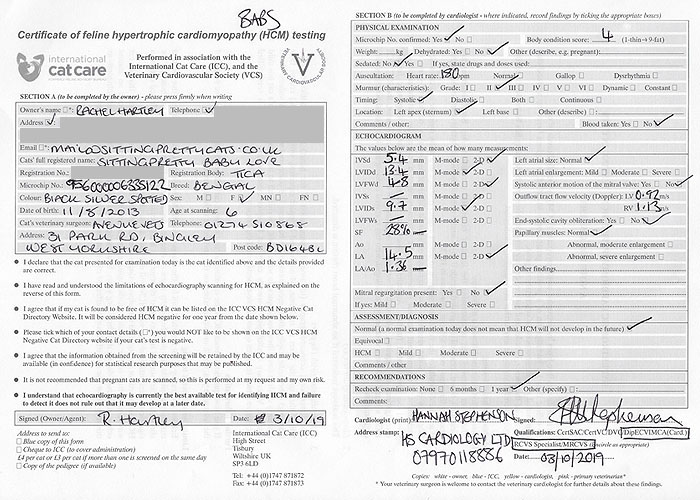 BABS
Certificate of feline hypertrophic cardiomyopathy (HCM) testing
international
cat care
Performed in association with the
International Cat Care (ICC), and the
Veterinary Cardiovascular Society (VCS)
VETERINARY CARDIOVASCULAR SOCIETY
SECTION A (to be completed by the owner) - please press firmly when writing
Owner's name □*: RACHEL HARTLEY Telephone ✓
Address ✓
Email □*: MAIL@SITTINGPRETTYCATS.CO.UK
Cats' full registered name: SITTINGPRETTY BABY LOVE
Registration No.: Registration Body: TICA
Microchip No.: 956000006335122 Breed: BENGAL
Colour: BLACK SILVER SPOTTED Sex: M □ F ✓ MN □ FN □
Date of birth: 11/8/2013 Age at scanning: 6
Cat's veterinary surgeon: AVENUE VETS Telephone: 01274 510868
Address: 31 PARK RD, BINGLEY
WEST YORKSHIRE Post code: BD16 4BL
• I declare that the cat presented for examination today is the cat identified above and the details provided
are correct.
• I have read and understood the limitations of echocardiography scanning for HCM, as explained on the
reverse of this form.
• I agree that if my cat is found to be free of HCM it can be listed on the ICC VCS HCM Negative Cat
Directory Website. It will be considered HCM negative for one year from the date shown below.
• Please tick which of your contact details (□*) you would NOT like to be shown on the ICC VCS HCM
Negative Cat Directory website if your cat's test is negative.
• I agree that the information obtained from the screening will be retained by the ICC and may be
available (in confidence) for statistical research purposes that may be published.
• It is not recommended that pregnant cats are scanned, so this is performed at my request and my own risk.
• I understand that echocardiography is currently the best available test for identifying HCM and failure
to detect it does not rule out that it may develop at a later date.
Signed (Owner/Agent): R. Hartley Date: 3/10/19
Address to send to:
□ Blue copy of this form
□ Cheque to ICC (to cover administration)
£4 per cat or £3 per cat if more than one is screened on the same day
□ Copy of the pedigree (if available)
International Cat Care (ICC)
High Street
Tisbury
Wiltshire UK
SP3 6LD
Tel: +44 (0)1747 871872
Fax: +44 (0)1747 871873
SECTION B (to be completed by cardiologist - where indicated, record findings by ticking the appropriate boxes)
PHYSICAL EXAMINATION
Microchip No. confirmed: Yes ✓ No □ Body condition score: 4 (1-thin→9-fat)
Weight: kg Dehydrated: Yes □ No ✓ Other (describe, e.g. pregnant):
Sedated: No ✓ Yes □ If yes, state drugs and doses used:
Auscultation: Heart rate: 180 bpm Normal □ Gallop □ Dysrhythmia □
Murmur (characteristics): Grade: I □ II ✓ III □ IV □ V □ VI □ Dynamic □ Constant □
Timing: Systolic ✓ Diastolic □ Both □ Continuous □
Location: Left apex (sternum) ✓ Left base □ Other (describe) □
Comments / other: Blood taken: Yes □ No ✓
ECHOCARDIOGRAM
The values below are the mean of how many measurements:
IVSd 5.4 mm M-mode □ 2-D ✓ Left atrial size: Normal ✓
LVIDd 13.4 mm M-mode □ 2-D ✓ Left atrial enlargement: Mild □ Moderate □ Severe □
LVFWd 4.8 mm M-mode □ 2-D ✓ Systolic anterior motion of the mitral valve: Yes □ No ✓
IVSs mm M-mode □ 2-D □ Outflow tract flow velocity (Doppler): LV 0.92 m/s
LVIDs 9.7 mm M-mode □ 2-D ✓ RV 1.13 m/s
LVFWs mm M-mode □ 2-D □ End-systolic cavity obliteration: Yes □ No ✓
SF 28% Papillary muscles: Normal ✓
Ao mm M-mode □ 2-D □ Abnormal, moderate enlargement □
LA 14.5 mm M-mode □ 2-D ✓ Abnormal, severe enlargement □
LA/Ao 1.36 Other findings
Mitral regurgitation present: Yes □ No ✓
If yes: Mild □ Moderate □ Severe □
ASSESSMENT/DIAGNOSIS
Normal (a normal examination today does not mean that HCM will not develop in the future) ✓
Equivocal □
HCM □ Mild □ Moderate □ Severe □
Comments / other
RECOMMENDATIONS
Recheck examination: None □ 6 months □ 1 year ✓ Other (specify) □:
Comments:
Cardiologist (print) HANNAH STEPHENSON Signed: HStephenson
Address stamp: HS CARDIOLOGY LTD
07970118886
Qualifications: CertSAC/CertVC/DVC/DipECVIMCA(Card.)
RCVS Specialist/MRCVS (circle as appropriate)
Date: 03/10/2019
Copies: white - owner, blue - ICC, yellow - cardiologist, pink - primary veterinarian*
* Your veterinary surgeon is welcome to contact the veterinary cardiologist for further details about these findings.